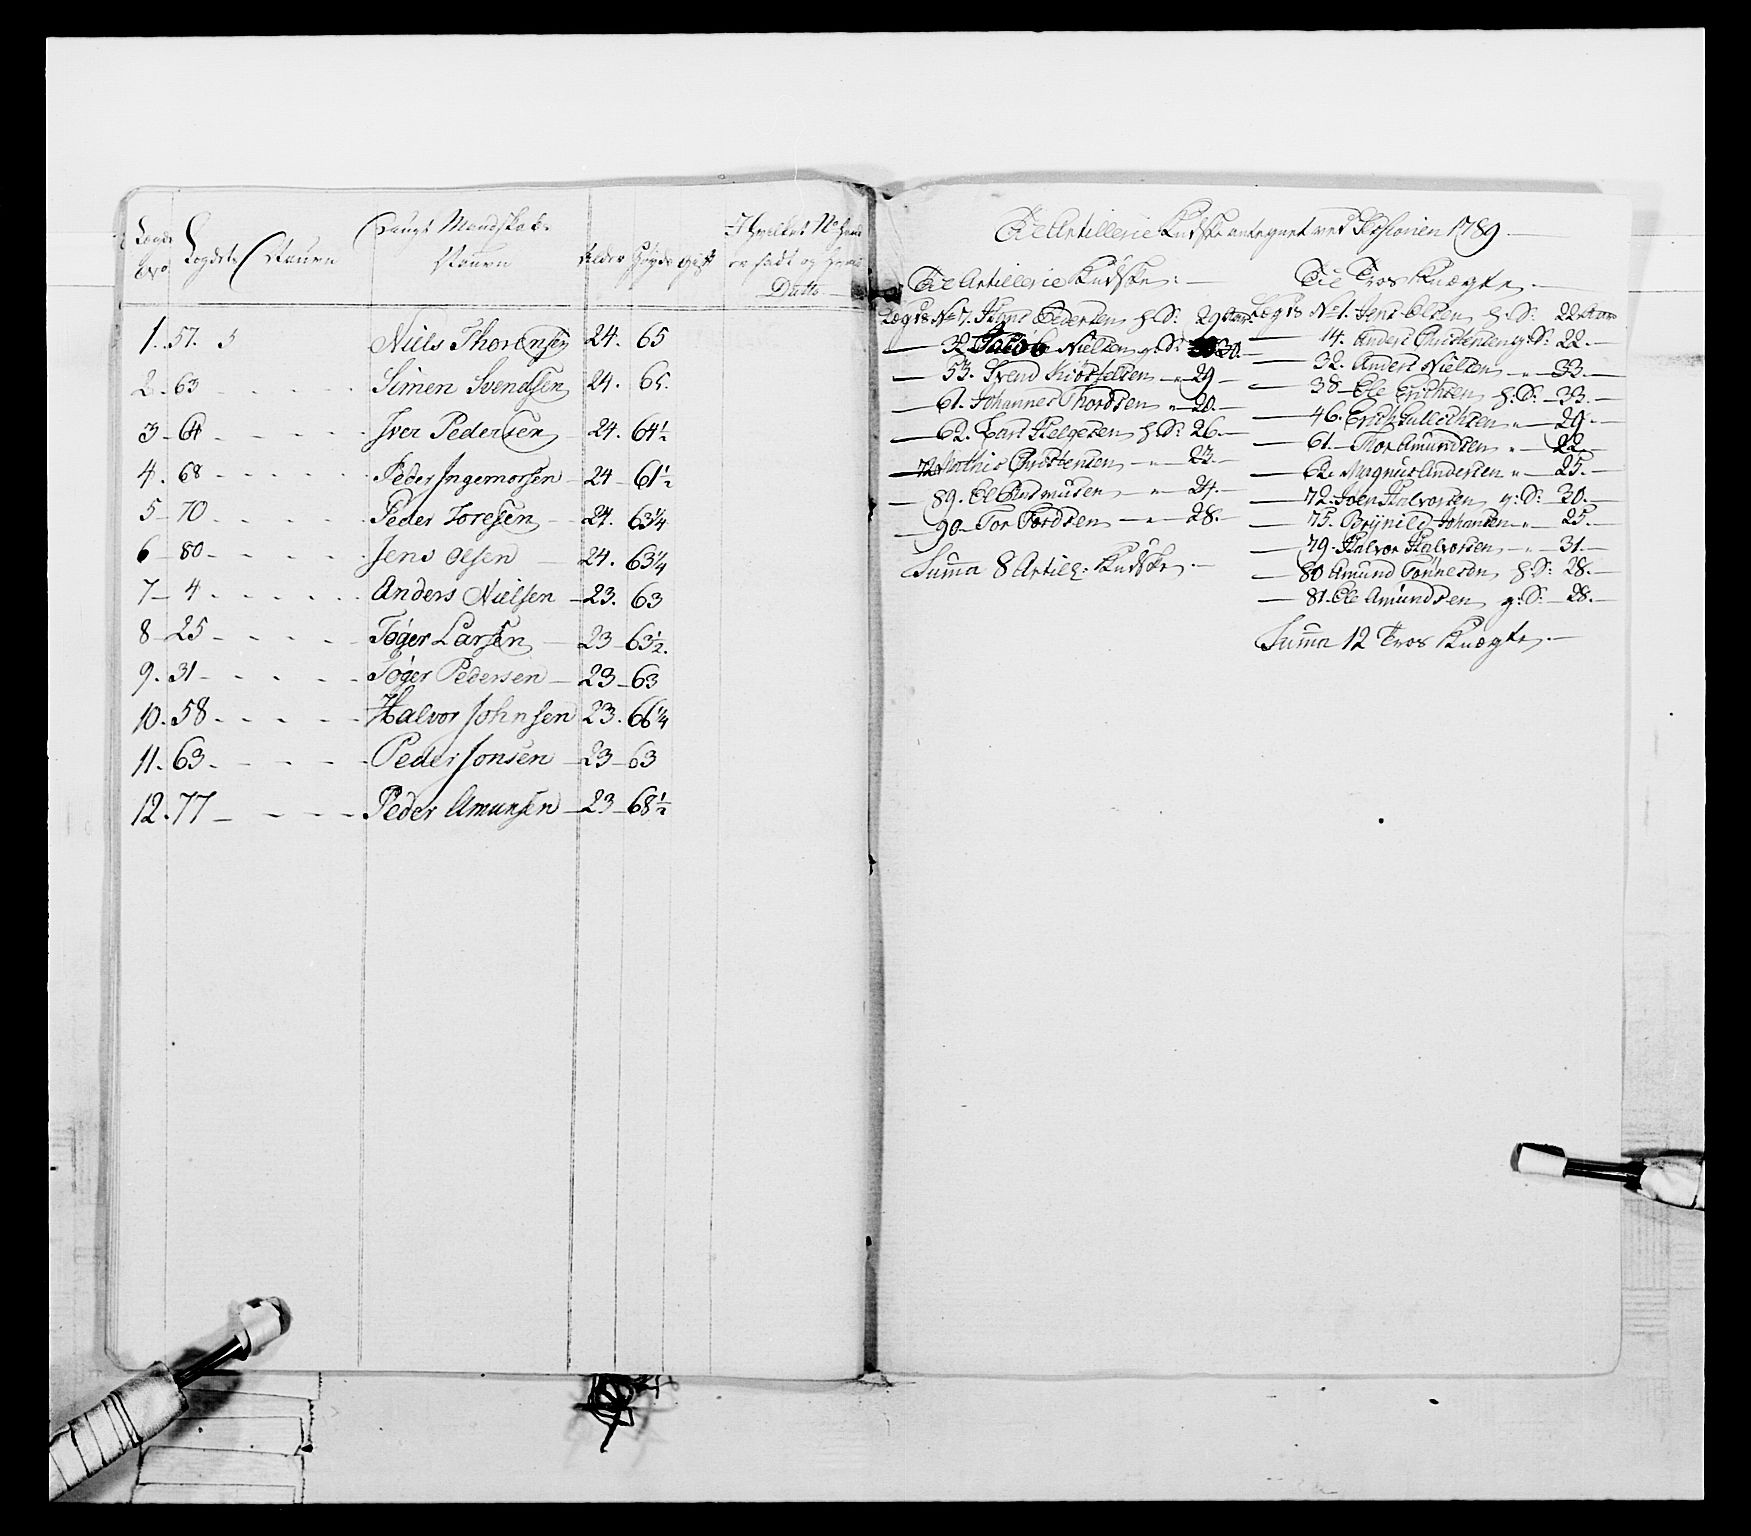 Lægds No Lægdets Nauen Ungt Mandskabs Nauen Alder Høyde Gift I hvilket No hand er født og hans Datto
1. 57. Niels Thoresen 24. 65
2 63 Simen Svendsen 24. 65.
3 64 Iver Pedersen 24. 64½
4. 68 Peder Ingemorsen 24 61½
5 70 Peder Toresen 24. 63¼
6 80 Jens Olsen 24. 63¼
7 4 Anders Nielsen 23. 63
8 25 Tøger Larsen 23 63½
9. 31 Tøger Pedersen 23 63
10. 58 Halvor Johnsen 23. 66¼
11. 63 Peder Jonsen 23 63
12. 77 Peder Amunsen 23 68½
Til Artillerie Kudske antegnet ved Sessionen 1789
Til Artillerie Kudske:
Lægds No 7. Hans Pedersen h: S: 29 Aar.
32 Jacob Nielsen g: S: 30.
53. Svend 29
61. Johannes Thordsen " 20.
62. Lars Helgesen h: S: 26.
72 Mathis Christensen " 23.
89. " 24.
90 Tor Tordsen " 28.
Summa 8 Artill: Kudske
Til Tros Knægte
Lægds No 1. Jens Olsen h: S: 22 Aar
14. Anders Christensen g: S: 22.
32. Anders Nielsen " 33.
38 Ole Erichsen h: S: 33.
46. Erich Gullichsen " 29.
61. Thor Amundsen " 22.
62. Magnus Andersen " 25.
72. Joen Halvorsen g: S: 30.
75. Brynild Johansen " 25.
79. Halvor Halvorsen " 31.
80 Amund Tønnesen h: S: 28.
81. Ole Amundsen g: S: 28.
Summa 12 Tros Knægte